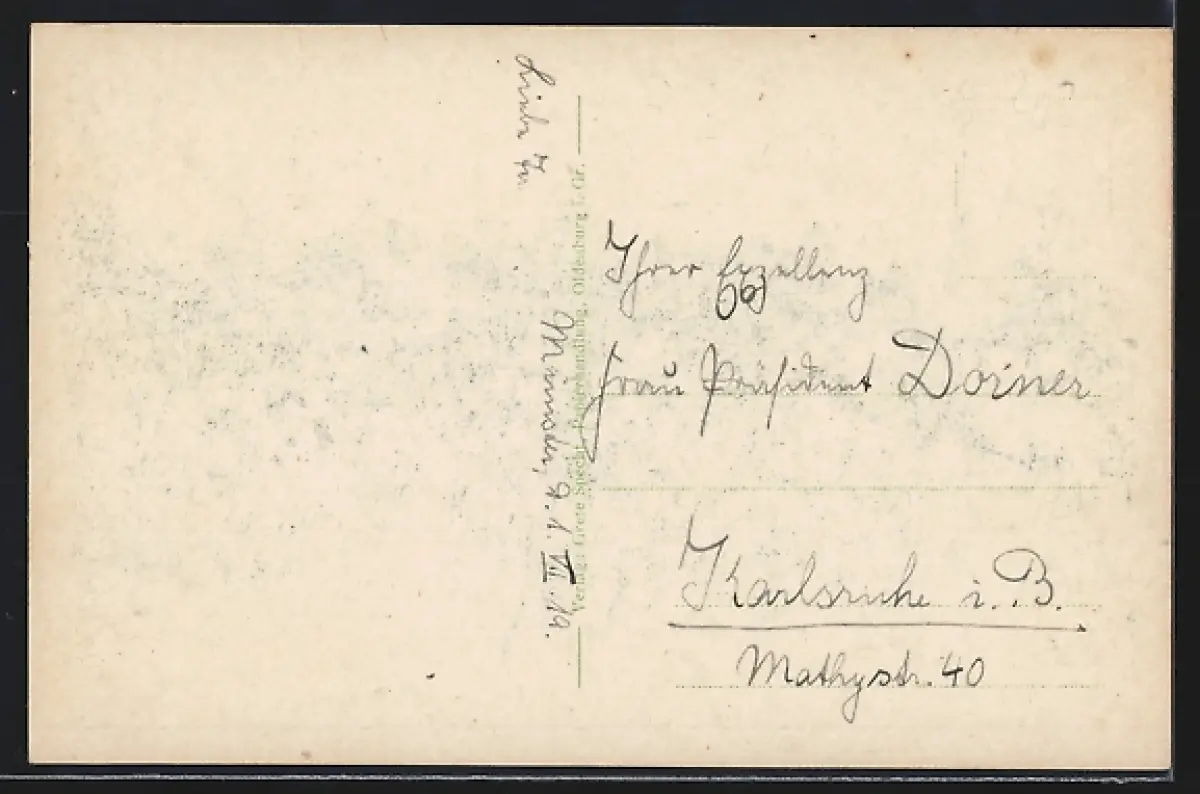 Liebe Fr.
Munster, d. 1. VII. 19.
Verlag: Grete Specht, Papierhandlung, Oldenburg i. Gr.
Ihrer Exzellenz
Frau Präsident Dorner
Karlsruhe i. B.
Mathystr. 40